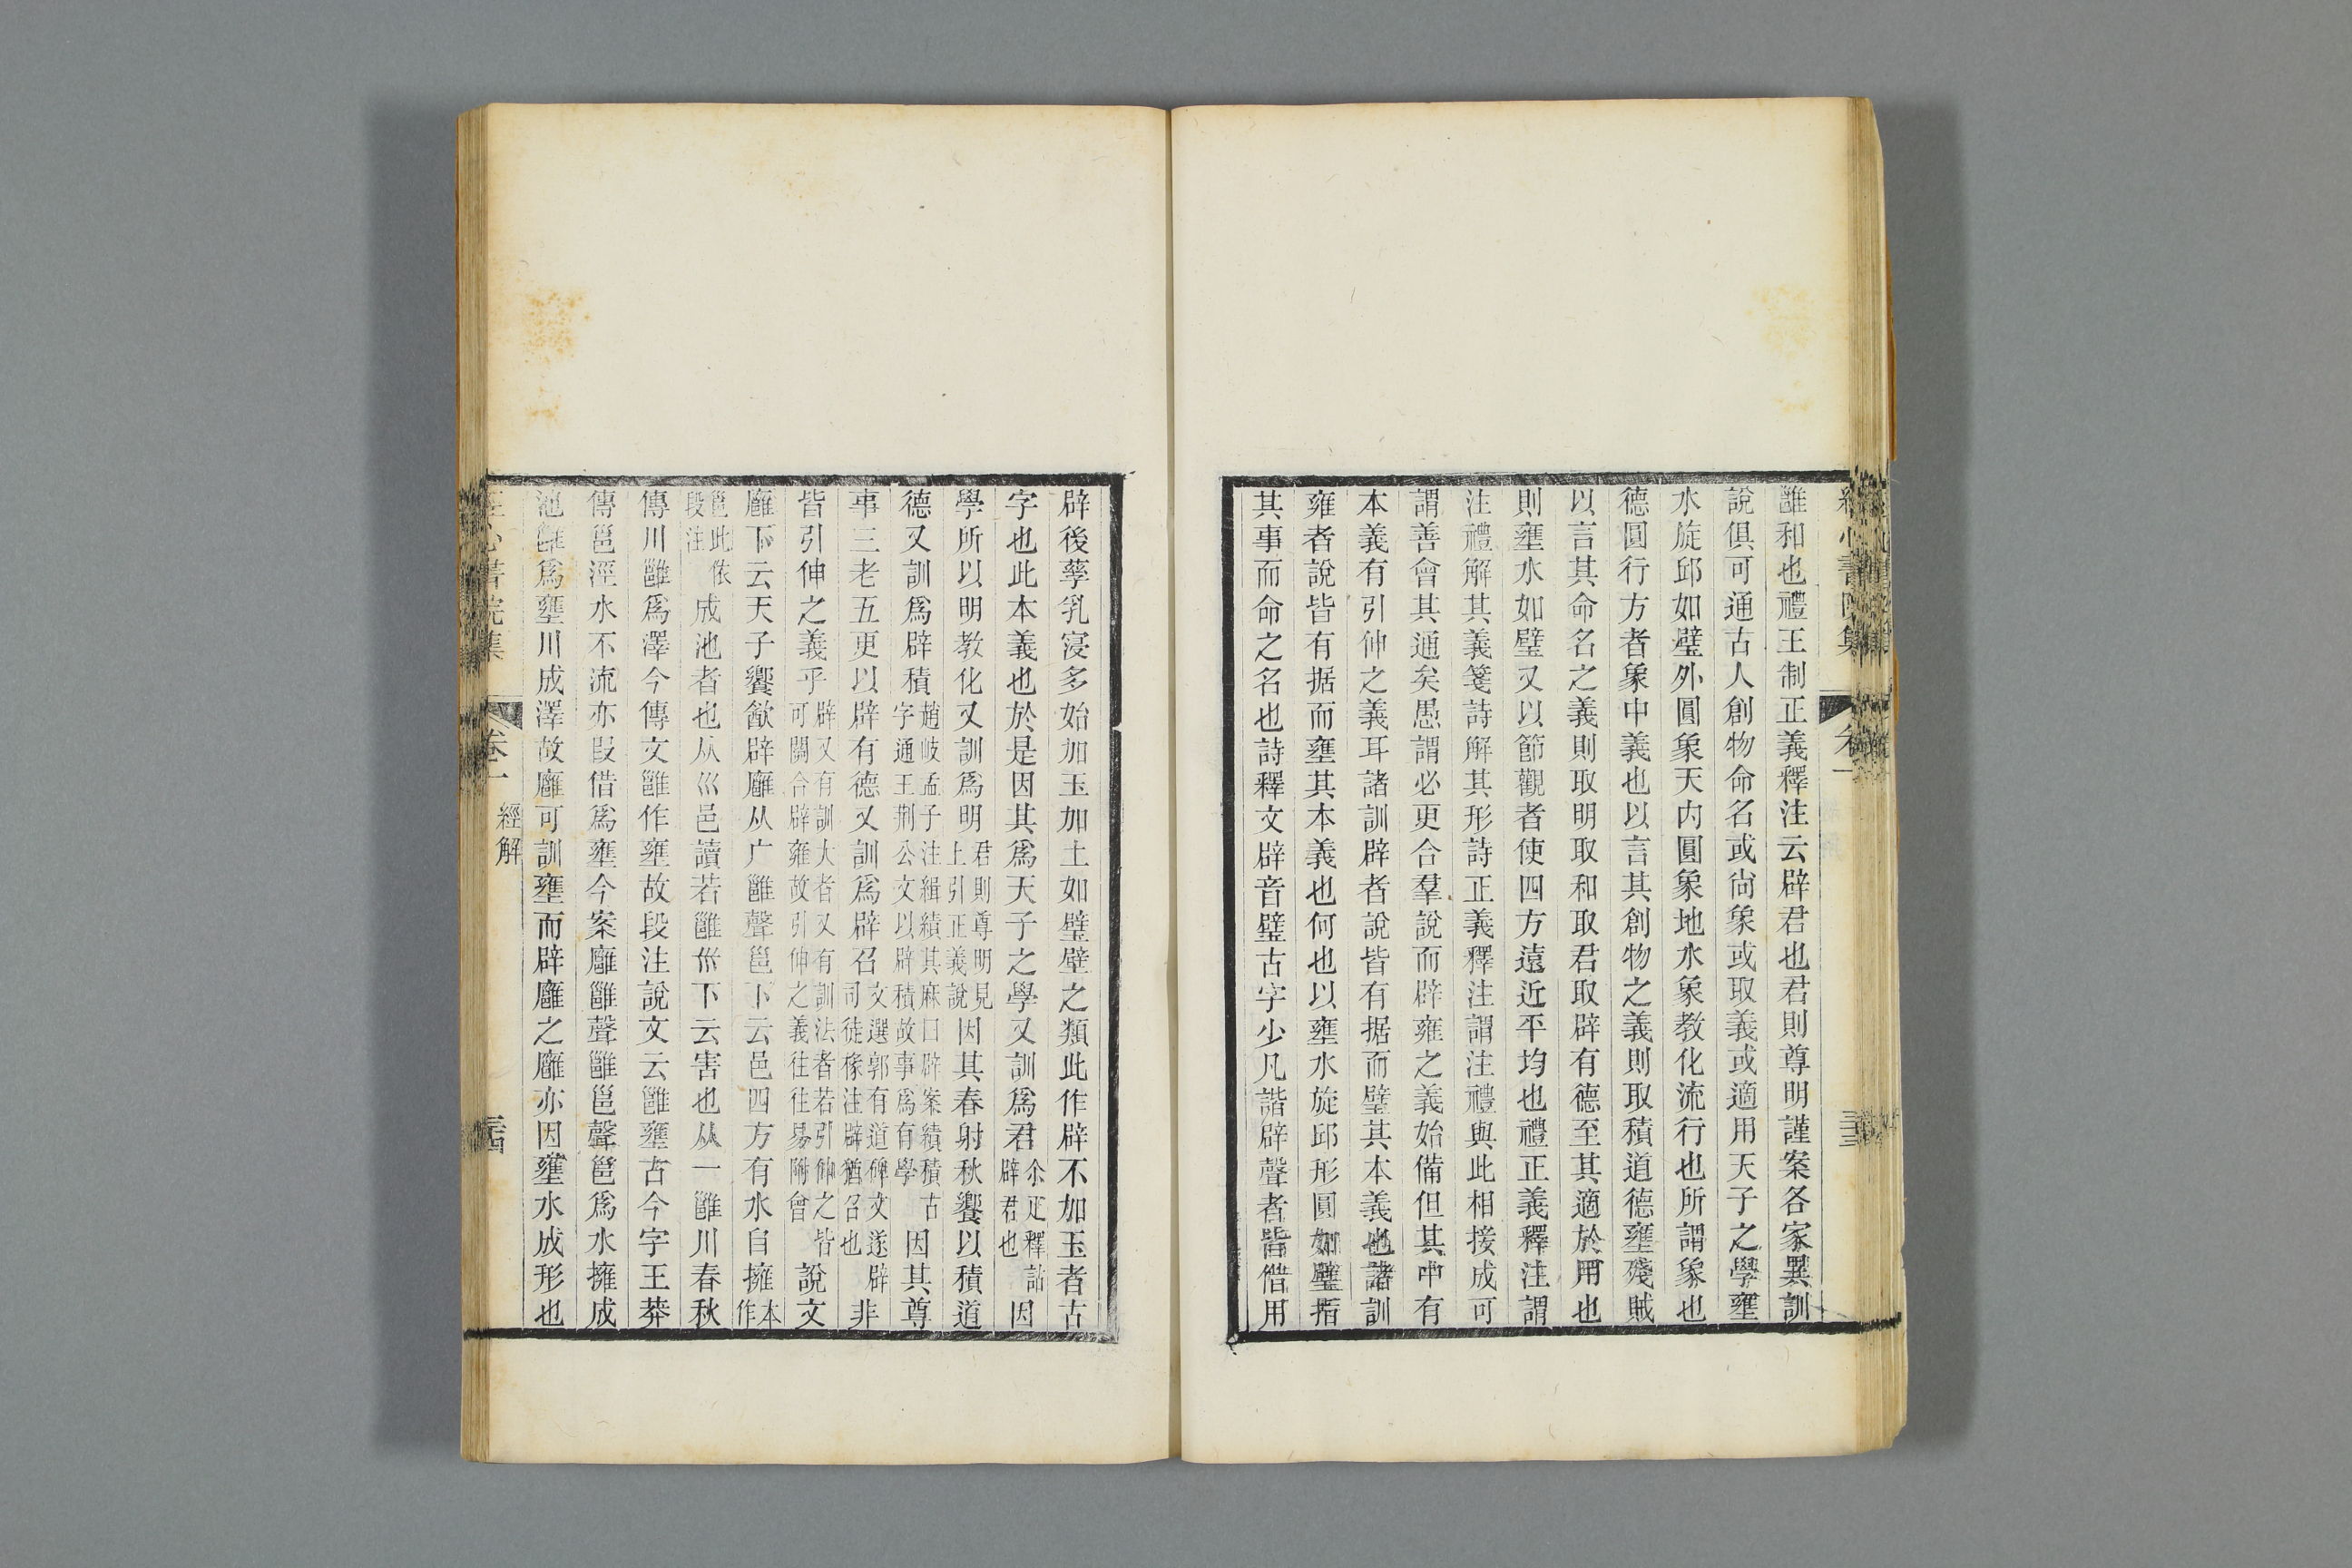 雝和也禮王制正義釋注云辟君也君則尊明謹案各家異訓
說俱可通古人創物命名或尙象或取義或適用天子之學壅
水旋邱如璧外圓象天內圓象地水象教化流行也所謂象也
德圓行方者象中義也以言其創物之義則取積道德壅殘賊
以言其命名之義則取明取和取君取辟有德至其適於用也
則壅水如璧又以節觀者使四方遠近平均也禮正義釋注謂
注禮解其義箋詩解其形詩正義釋注謂注禮與此相接成可
謂善會其通矣愚謂必更合羣說而辟雍之義始備但其中有
本義有引伸之義耳諸訓辟者說皆有据而璧其本義也諸訓
雍者說皆有据而壅其本義也何也以壅水旋邱形圓如璧指
其事而命之名也詩釋文辟音璧古字少凡諧辟聲者皆借用
辟後孳乳寖多始加玉加土如璧壁之類此作辟不加玉者古
字也此本義也於是因其爲天子之學又訓爲君尒疋釋詁辟君也因
學所以明教化又訓爲明君則尊明見上引正義說因其春射秋饗以積道
德又訓爲辟積趙岐孟子注緝績其麻曰辟案績積古字通王荆公文以辟積故事爲有學因其尊
事三老五更以辟有德又訓爲辟召文選郭有道碑文遂辟司徒掾注辟猶召也非
皆引伸之義乎辟又有訓大者又有訓法者若引伸之皆可闢合辟雍故引伸之義往往易附會說文
廱下云天子饗飮辟廱从广雝聲邕下云邑四方有水自擁本作
邕此依段注成池者也从巛邑讀若雝巛下云害也从一雝川春秋
傳川雝爲澤今傳文雝作壅故段注說文云雝壅古今字王莽
傳邕涇水不流亦叚借爲壅今案廱雝聲雝邕聲邕爲水擁成
池雝爲壅川成澤故廱可訓壅而辟廱之廱亦因壅水成形也
卷一
經解